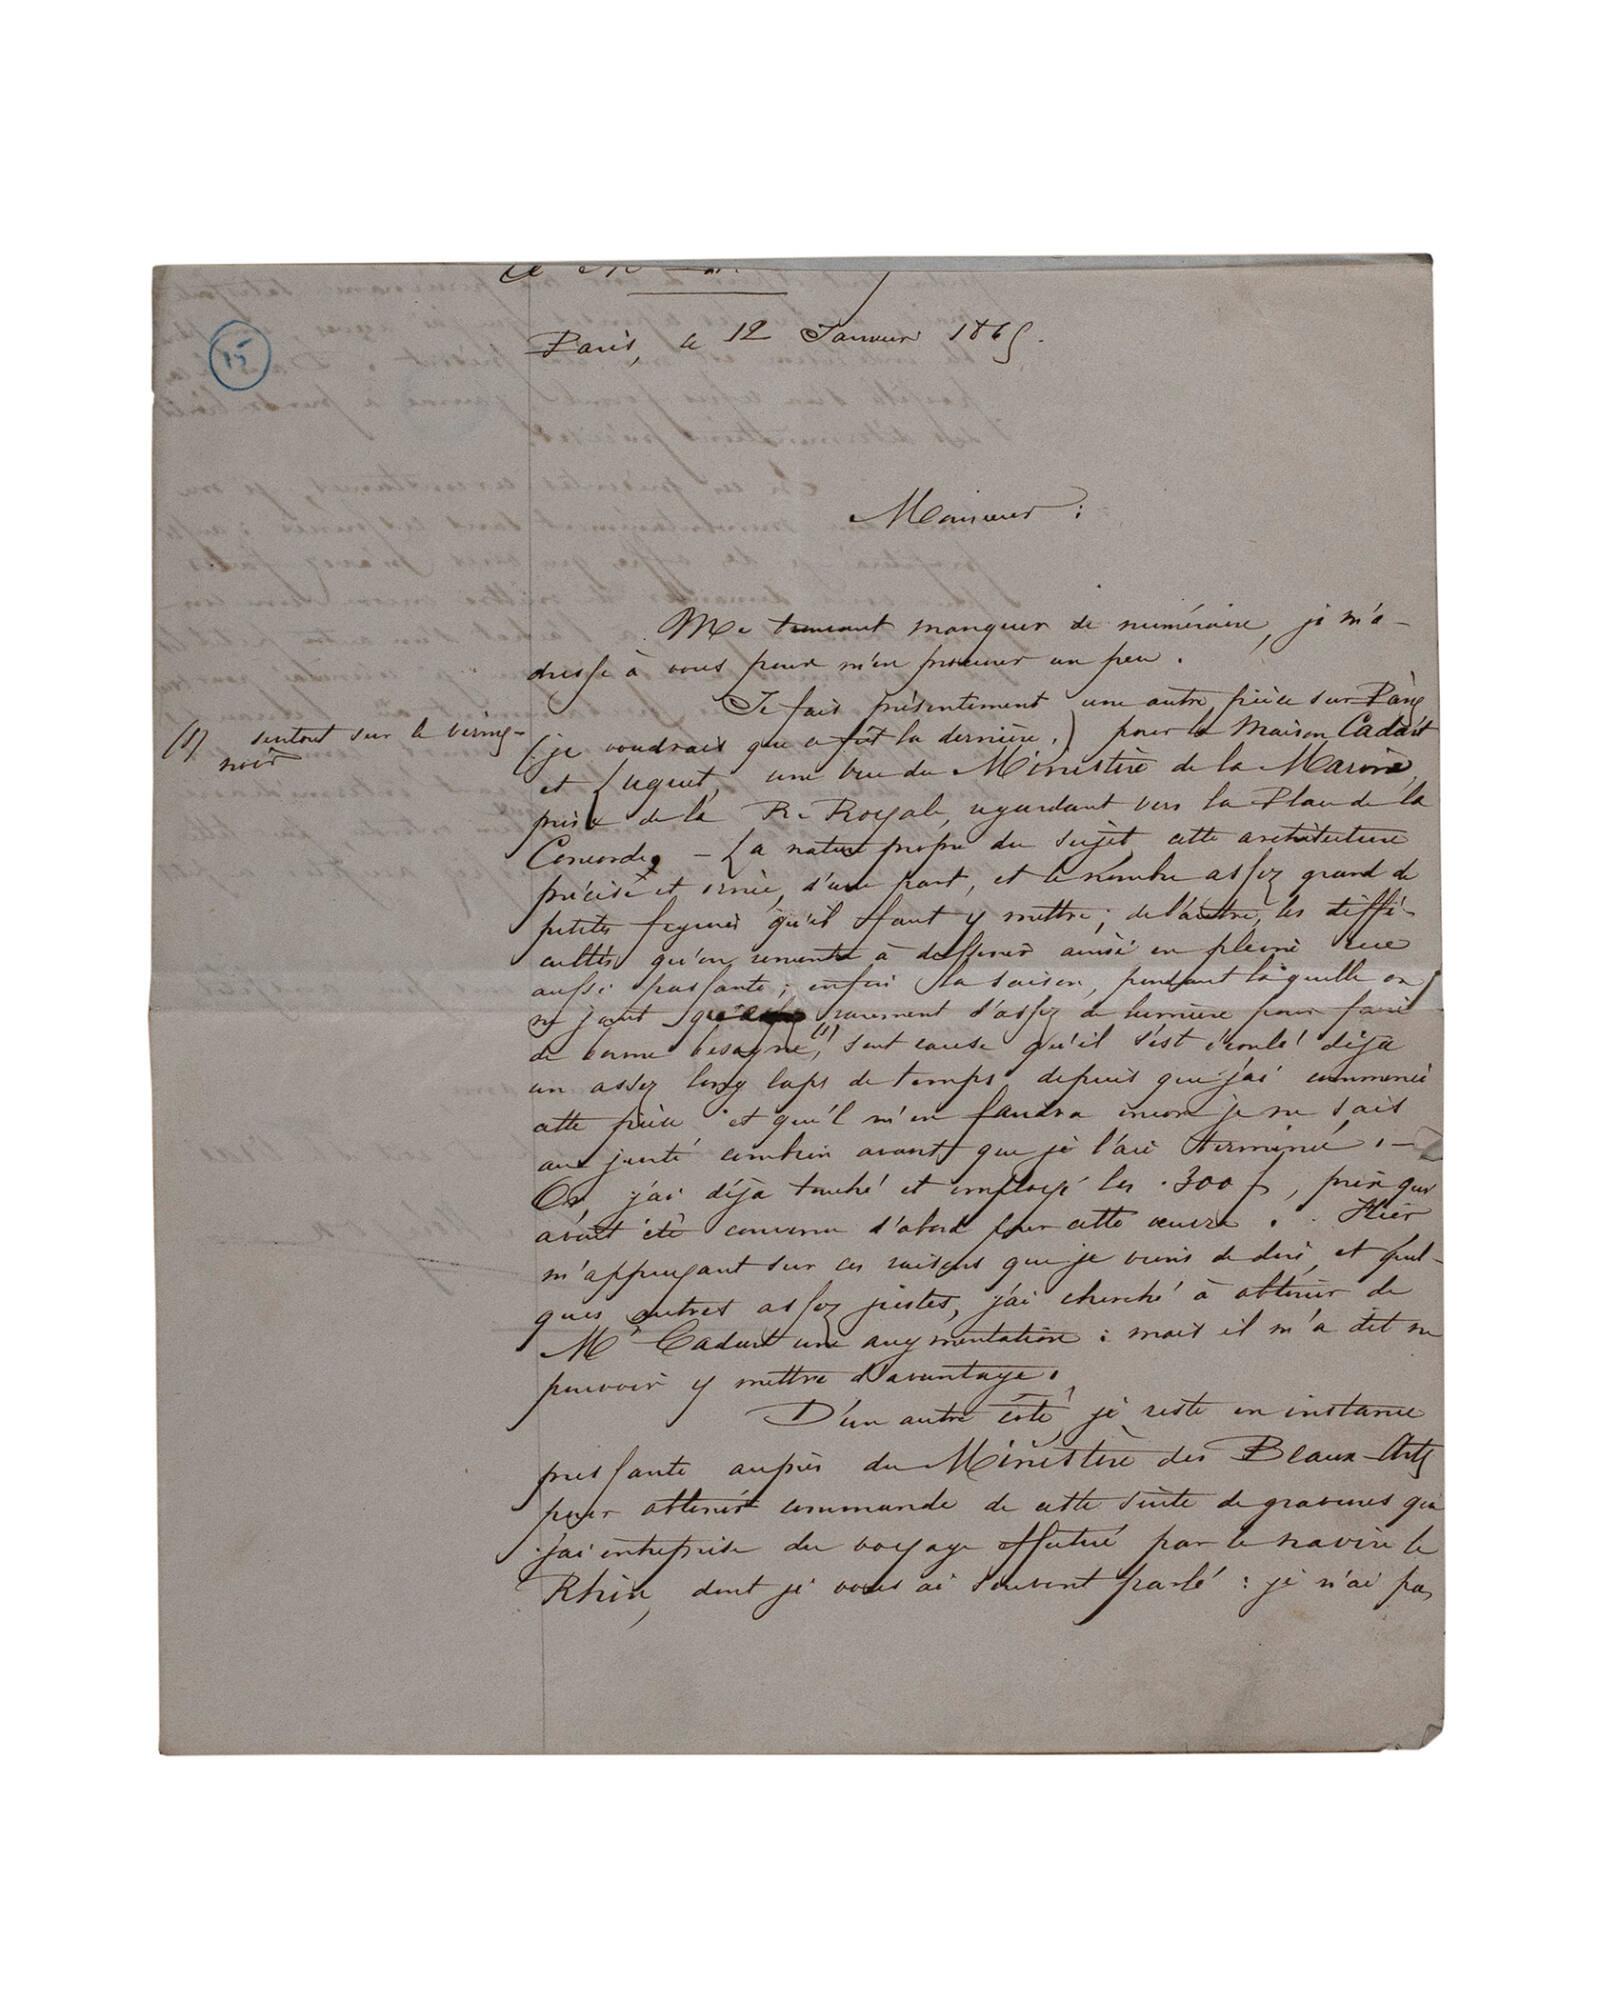 15
Paris, le 12 Janvier 1865.
Monsieur :
Me trouvant manquer de numéraire, je m'a-
dresse à vous pour m'en procurer un peu.
Je fais présentement une autre pièce sur Paris
(1) surtout sur le vernis-
noir
(je voudrais que ce fût la dernière.) pour la Maison Cadart
et Luquet, une vue du Ministère de la Marine,
prise de la R. Royale, regardant vers la Place de la
Concorde. – La nature propre du sujet, cette architecture
précise et ornée, d'une part, et le nombre assez grand de
petites figures qu'il faut y mettre; de l'autre, les diffi-
cultés qu'on rencontre à dessiner ainsi en pleine rue
aussi passante; enfin la saison, pendant laquelle on
ne jouit que rarement d'assez de lumière pour faire
de bonne besogne,(1) sont cause qu'il s'est écoulé déjà
un assez long laps de temps depuis que j'ai commencé
cette pièce et qu'il m'en faudra encore je ne sais
au juste combien avant que je l'aie terminée. –
Or, j'ai déjà touché et employé les 300 f, prix qui
avait été convenu d'abord pour cette œuvre. Hier
m'appuyant sur ces raisons que je viens de dire, et quel-
ques autres assez justes, j'ai cherché à obtenir de
Mr Cadart une augmentation : mais il m'a dit ne
pouvoir y mettre davantage.
D'un autre côté, je reste en instance
pressante auprès du Ministère des Beaux-Arts
pour obtenir commande de cette suite de gravures que
j'ai entreprise du voyage effectué par le navire le
Rhin, dont je vous ai souvent parlé : je n'ai pas